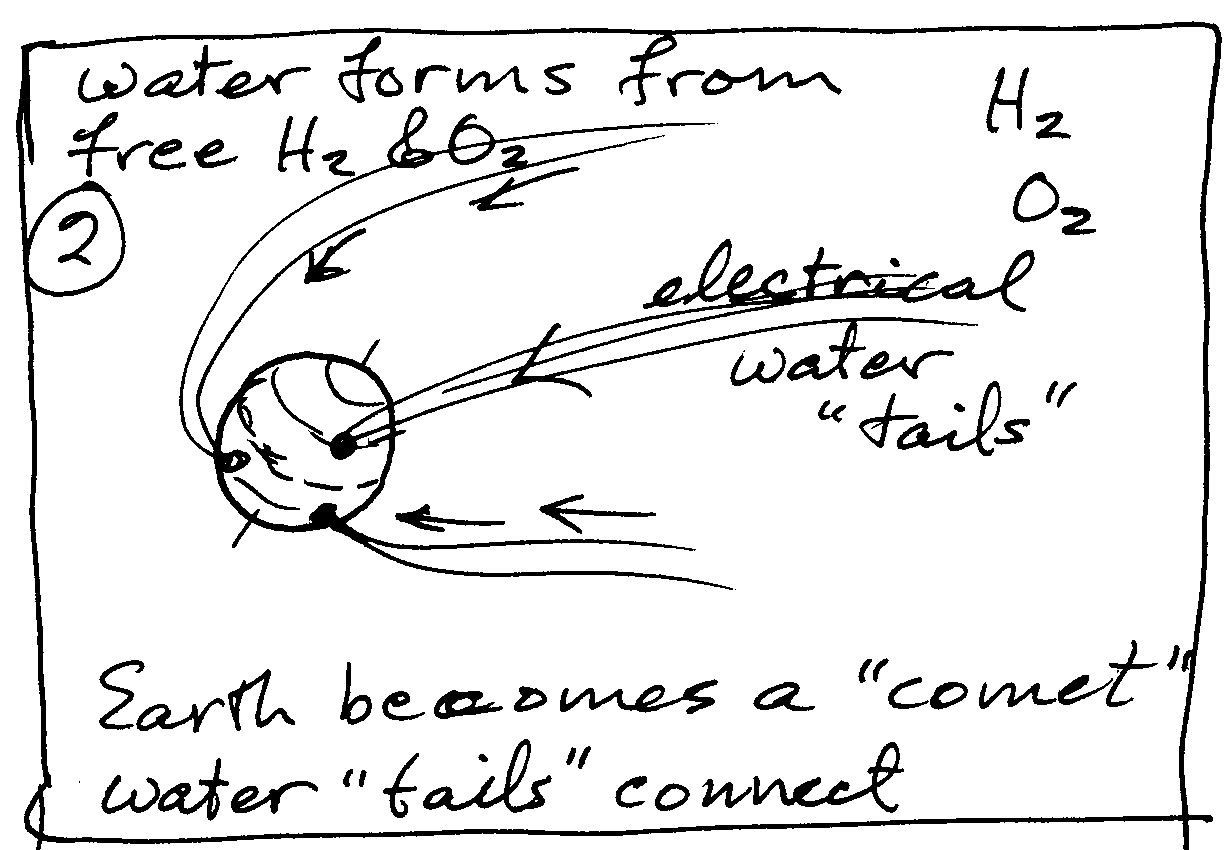 water forms from
free H₂ & O₂
H₂
O₂
2
electrical
water
"tails"
Earth becomes a "comet"
water "tails" connect